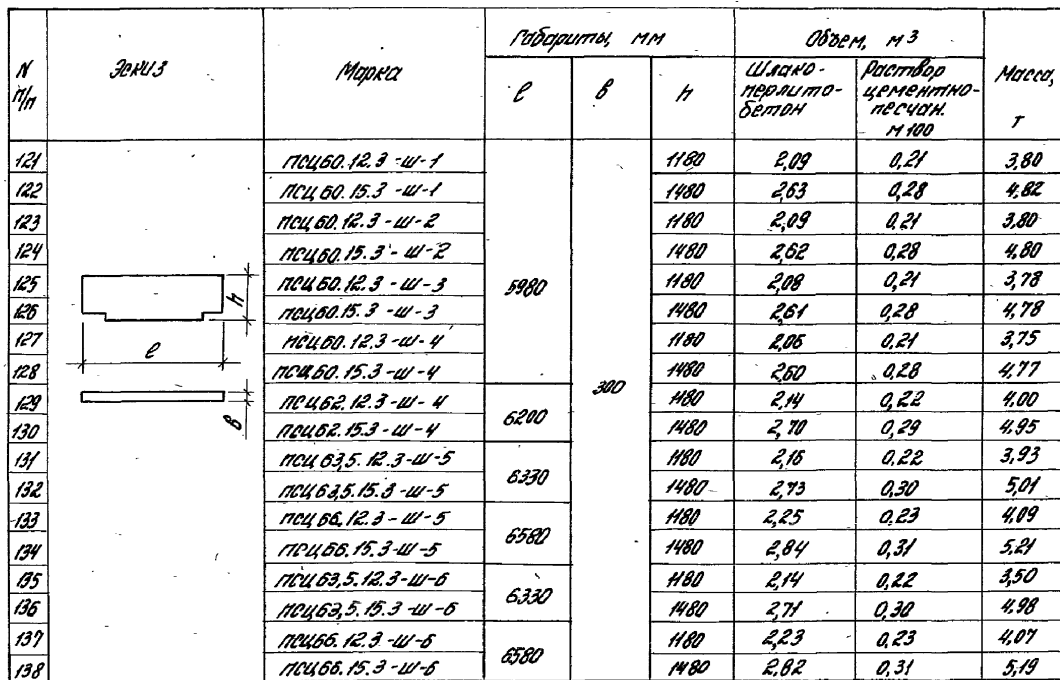 N п/п Эскиз Марка Габариты, мм Объем, м3 Масса, т
l в h Шлако-перлито-бетон Раствор цементно-песчан. М100
121 ПСЦ60.12.3-Ш-1 5980 300 1180 2,09 0,21 3,80
122 ПСЦ60.15.3-Ш-1 1480 2,63 0,28 4,82
123 ПСЦ60.12.3-Ш-2 1180 2,09 0,21 3,80
124 ПСЦ60.15.3-Ш-2 1480 2,62 0,28 4,80
125 ПСЦ60.12.3-Ш-3 1180 2,08 0,21 3,78
126 ПСЦ60.15.3-Ш-3 1480 2,61 0,28 4,78
127 ПСЦ60.12.3-Ш-4 1180 2,06 0,21 3,75
128 ПСЦ60.15.3-Ш-4 1480 2,60 0,28 4,77
129 ПСЦ62.12.3-Ш-4 6200 1180 2,14 0,22 4,00
130 ПСЦ62.15.3-Ш-4 1480 2,70 0,29 4,95
131 ПСЦ63,5.12.3-Ш-5 6330 1180 2,16 0,22 3,93
132 ПСЦ63,5.15.3-Ш-5 1480 2,73 0,30 5,01
133 ПСЦ66.12.3-Ш-5 6580 1180 2,25 0,23 4,09
134 ПСЦ66.15.3-Ш-5 1480 2,84 0,31 5,21
135 ПСЦ63,5.12.3-Ш-6 6330 1180 2,14 0,22 3,50
136 ПСЦ63,5.15.3-Ш-6 1480 2,71 0,30 4,98
137 ПСЦ66.12.3-Ш-6 6580 1180 2,23 0,23 4,07
138 ПСЦ66.15.3-Ш-6 1480 2,82 0,31 5,19
h
l
в